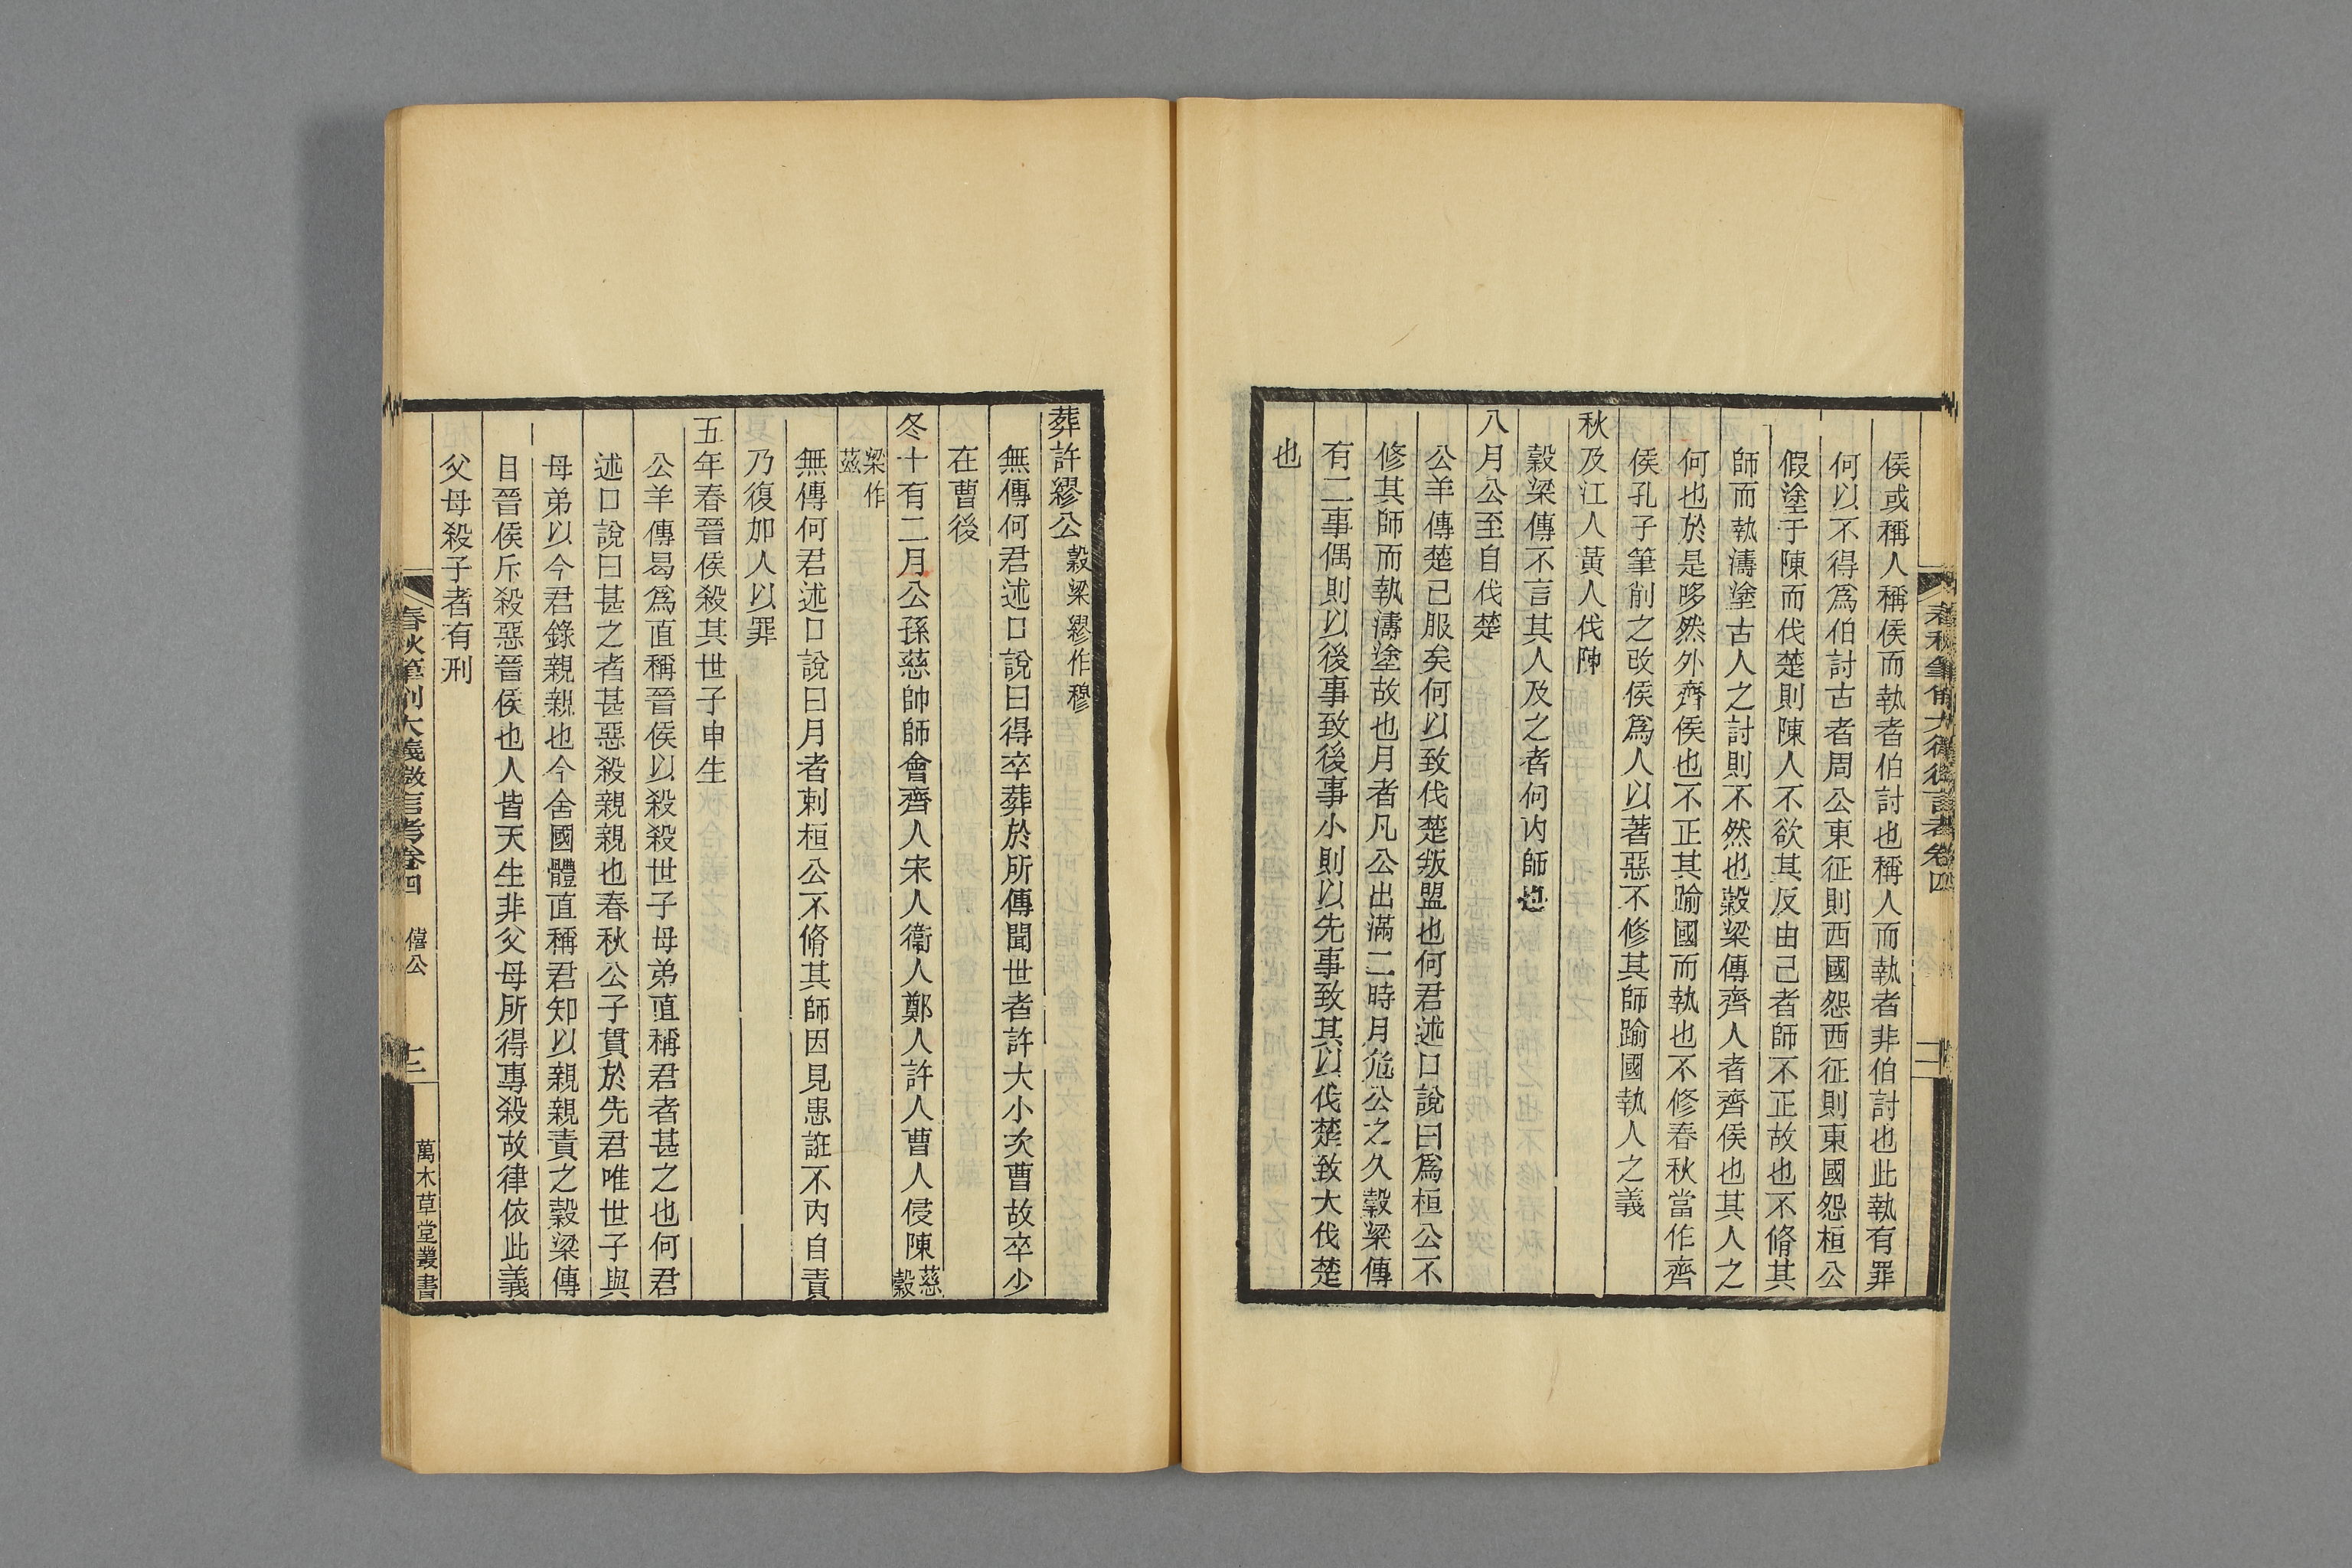 侯或稱人稱侯而執者伯討也稱人而執者非伯討也此執有罪
何以不得爲伯討古者周公東征則西國怨西征則東國怨桓公
假塗于陳而伐楚則陳人不欲其反由己者師不正故也不脩其
師而執濤塗古人之討則不然也穀梁傳齊人者齊侯也其人之
何也於是哆然外齊侯也不正其踰國而執也不修春秋當作齊
侯孔子筆削之改侯爲人以著惡不修其師踰國執人之義
秋及江人黃人伐陳
穀梁傳不言其人及之者何内師也
八月公至自伐楚
公羊傳楚己服矣何以致伐楚叛盟也何君述口說曰爲桓公不
修其師而執濤塗故也月者凡公出滿二時月危公之久穀梁傳
有二事偶則以後事致後事小則以先事致其以伐楚致大伐楚
也
葬許繆公 穀梁繆作穆
無傳何君述口說曰得卒葬於所傳聞世者許大小次曹故卒少
在曹後
冬十有二月公孫慈帥師會齊人宋人衞人鄭人許人曹人侵陳 慈穀
梁作茲
無傳何君述口說曰月者刺桓公不脩其師因見患誑不内自責
乃復加人以罪
五年春晉侯殺其世子申生
公羊傳曷爲直稱晉侯以殺殺世子母弟直稱君者甚之也何君
述口說曰甚之者甚惡殺親親也春秋公子貫於先君唯世子與
母弟以今君錄親親也今舍國體直稱君知以親親責之穀梁傳
目晉侯斥殺惡晉侯也人皆天生非父母所得專殺故律依此義
父母殺子者有刑
春秋筆削大義微言考卷四 僖公
萬木草堂叢書